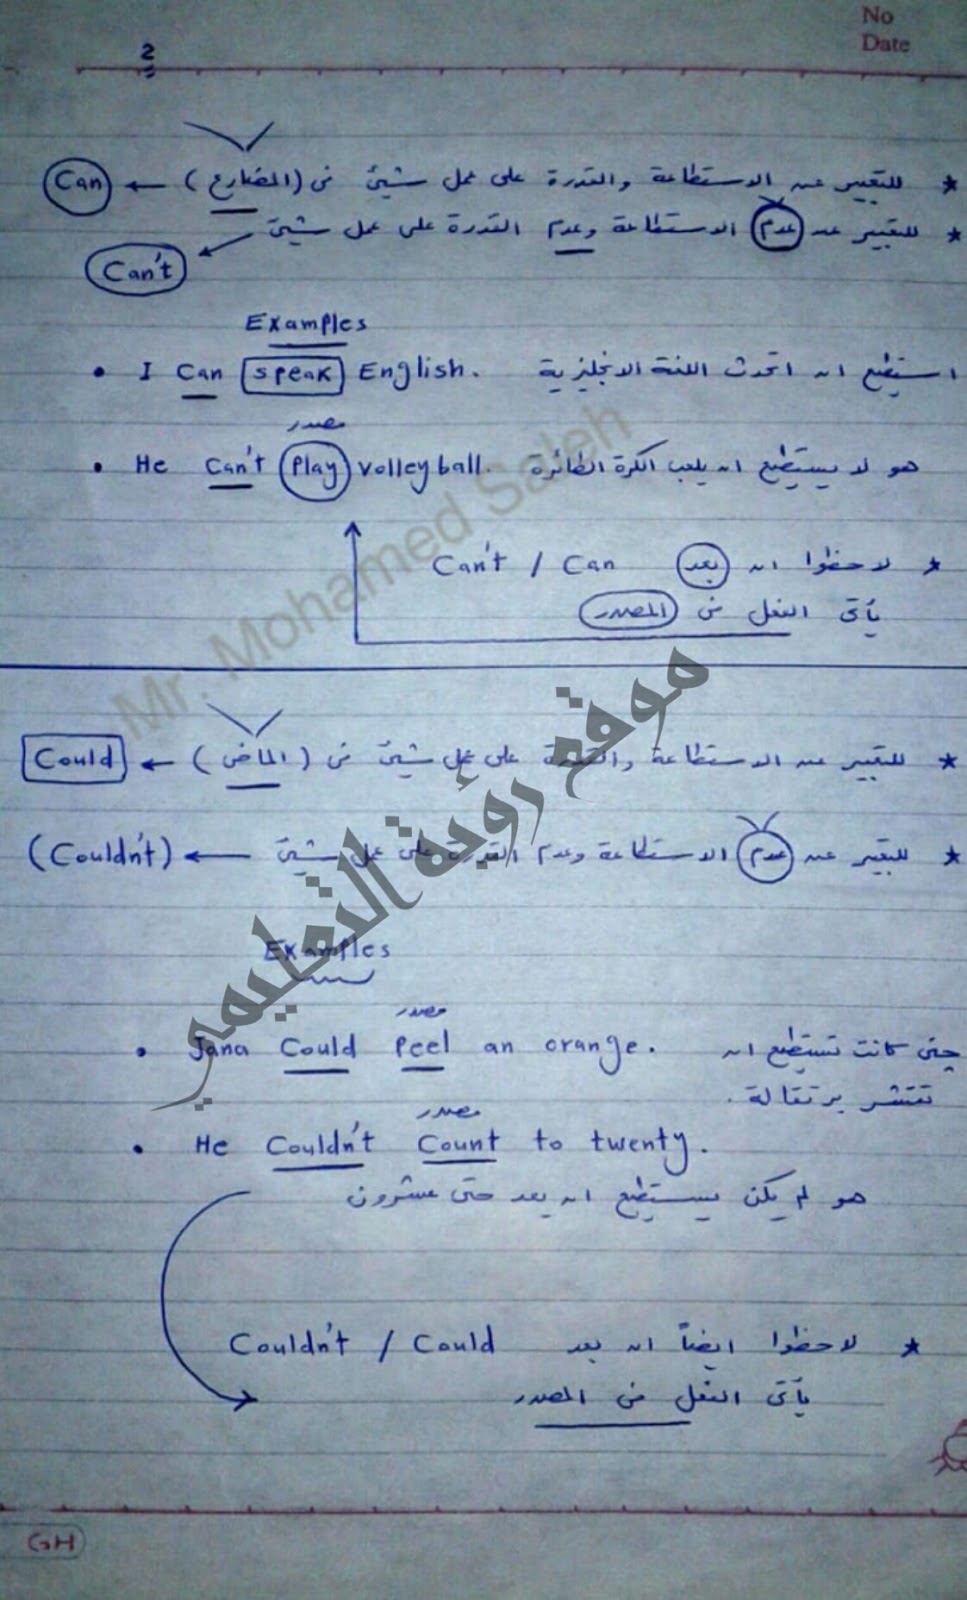 No
Date
2
★ للتعبير عن الاستطاعة والقدرة على عمل شيئ فى (المضارع) ← Can
★ للتعبير عن عدم الاستطاعة وعدم القدرة على عمل شيئ ← Can't
Examples
• I Can speak English. استطيع ان اتحدث اللغة الانجليزية
مصدر
• He Can't Play volleyball. هو لا يستطيع ان يلعب الكرة الطائرة
★ لاحظوا ان بعد Can't / Can
يأتى الفعل فى المصدر
Mr. Mohamed Saleh
موقع رؤية التعليمي
★ للتعبير عن الاستطاعة والقدرة على عمل شيئ فى (الماضى) ← Could
★ للتعبير عن عدم الاستطاعة وعدم القدرة على عمل شيئ ← (Couldn't)
Examples
مصدر
• Jana Could Peel an orange. جنى كانت تستطيع ان
تقشر برتقالة .
مصدر
• He Couldn't Count to twenty.
هو لم يكن يستطيع ان يعد حتى عشرون
★ لاحظوا ايضاً ان بعد Couldn't / Could
يأتى الفعل فى المصدر
GH